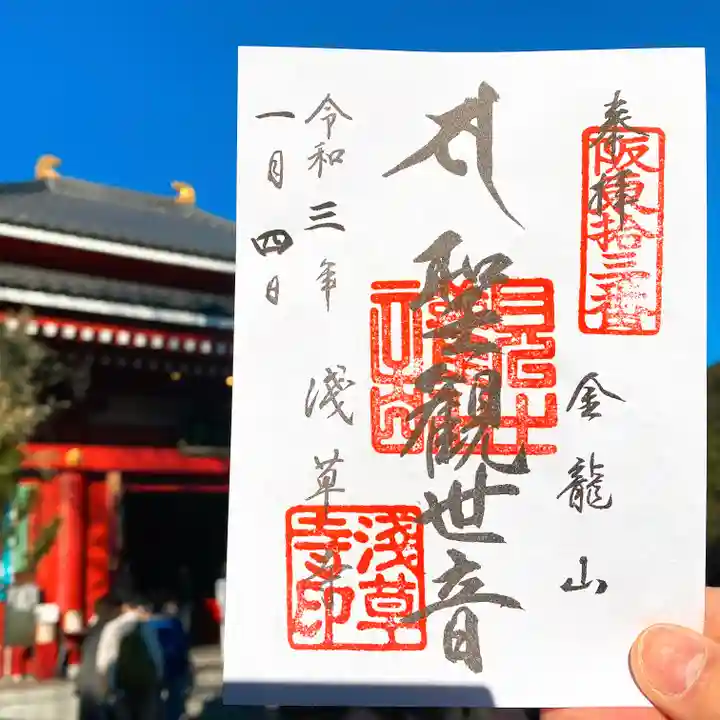 奉拝
阪東拾三番
金龍山
聖観世音
令和三年
淺草寺
淺草寺印
一月四日